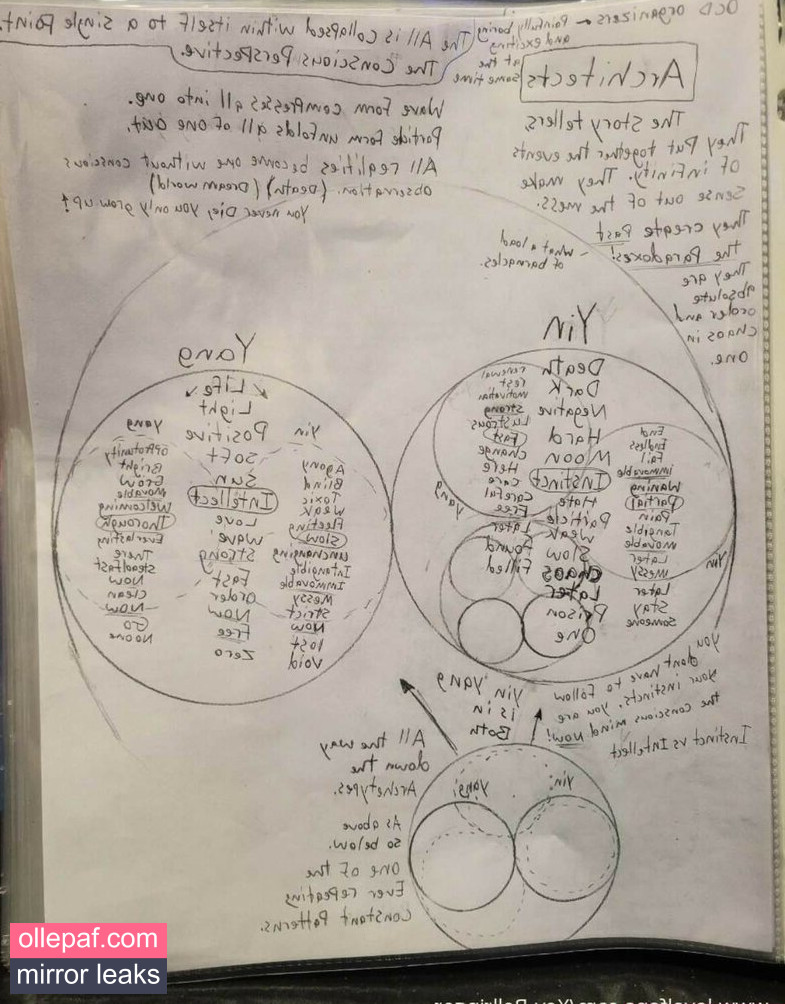 OCD organizers - Painfully boring
and exciting
at the
same time
Architects
The Story tellers,
They Put together the events
of infinity. They make
sense out of the mess.
They create Past
the Paradoxes!
They are
absolute
order and
chaos in
one.
- what a load
of barnacles.
The All is collapsed within itself to a single Point.
The Conscious Perspective.
Wave Form compresses all into one.
Particle Form unfolds all of one out.
All realities become one without conscious
observation. (Death) (Dream world)
You never Die, you only grow up!
Yin
End
Endless
Fail
immovable
Waning
Partial
Pain
Tangible
movable
Later
Messy
Later
Stay
Someone
Yin
Death
Dark
Negative
Hard
Moon
Instinct
Hate
Particle
weak
Slow
Chaos
Later
Prison
One
renewal
rest
motivation
strong
Lustrous
Fast
change
Here
care
careful
Free
Later
Found
Filled
yang
Yang
Yin
Agony
Blind
Toxic
weak
Fleeting
Slow
unchanging
Intangible
Immovable
Messy
Strict
Now
lost
Void
Life
Light
Positive
Soft
Sun
Intellect
Love
wave
Strong
Fast
order
Now
Free
Zero
yang
opportunity
Bright
Grow
Movable
Welcoming
Thorough
Everlasting
There
Steadfast
Now
clean
Now
Go
No one
you
dont have to follow
your instincts, you are
the conscious mind Now!
Instinct vs Intellect
yin yang
is in
Both
yin
yang
All the way
down the
Archetypes.
As above
so below.
One of the
Ever repeating
Constant Patterns.
ollepaf.com
mirror leaks